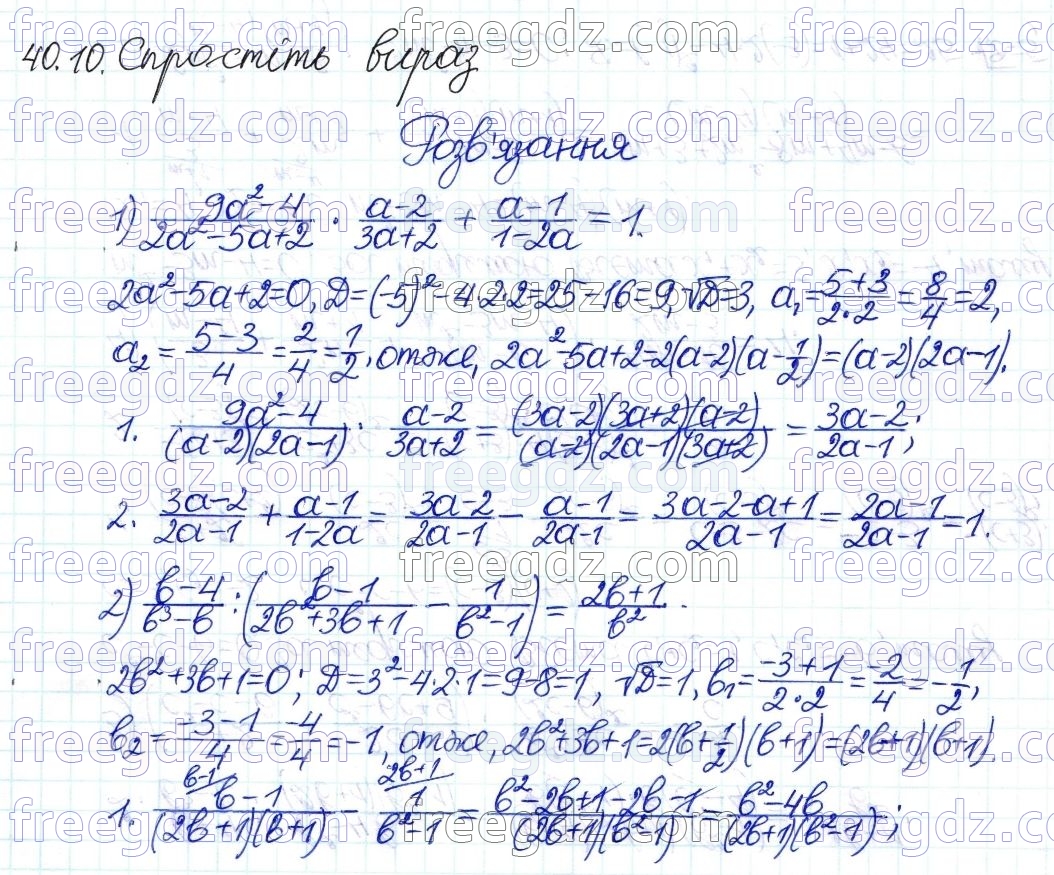 40.10. Спростіть вираз
Розв'язання
1) (9a²-4)/(2a²-5a+2) · (a-2)/(3a+2) + (a-1)/(1-2a) = 1.
2a²-5a+2=0, D=(-5)²-4·2·2=25-16=9, √D=3, a₁=(5+3)/(2·2)=8/4=2,
a₂=(5-3)/4=2/4=1/2, отже, 2a²-5a+2=2(a-2)(a-1/2)=(a-2)(2a-1).
1. (9a²-4)/((a-2)(2a-1)) · (a-2)/(3a+2) = ((3a-2)(3a+2)(a-2))/((a-2)(2a-1)(3a+2)) = (3a-2)/(2a-1);
2. (3a-2)/(2a-1) + (a-1)/(1-2a) = (3a-2)/(2a-1) - (a-1)/(2a-1) = (3a-2-a+1)/(2a-1) = (2a-1)/(2a-1) = 1.
2) (b-4)/(b³-b) : ((b-1)/(2b²+3b+1) - 1/(b²-1)) = (2b+1)/b².
2b²+3b+1=0; D=3²-4·2·1=9-8=1, √D=1, b₁=(-3+1)/(2·2)=-2/4=-1/2,
b₂=(-3-1)/4=-4/4=-1, отже, 2b²+3b+1=2(b+1/2)(b+1)=(2b+1)(b+1)
b-1 2b+1
1. (b-1)/((2b+1)(b+1)) - 1/(b²-1) = (b²-2b+1-2b-1)/((2b+1)(b²-1)) = (b²-4b)/((2b+1)(b²-1));
freegdz.com